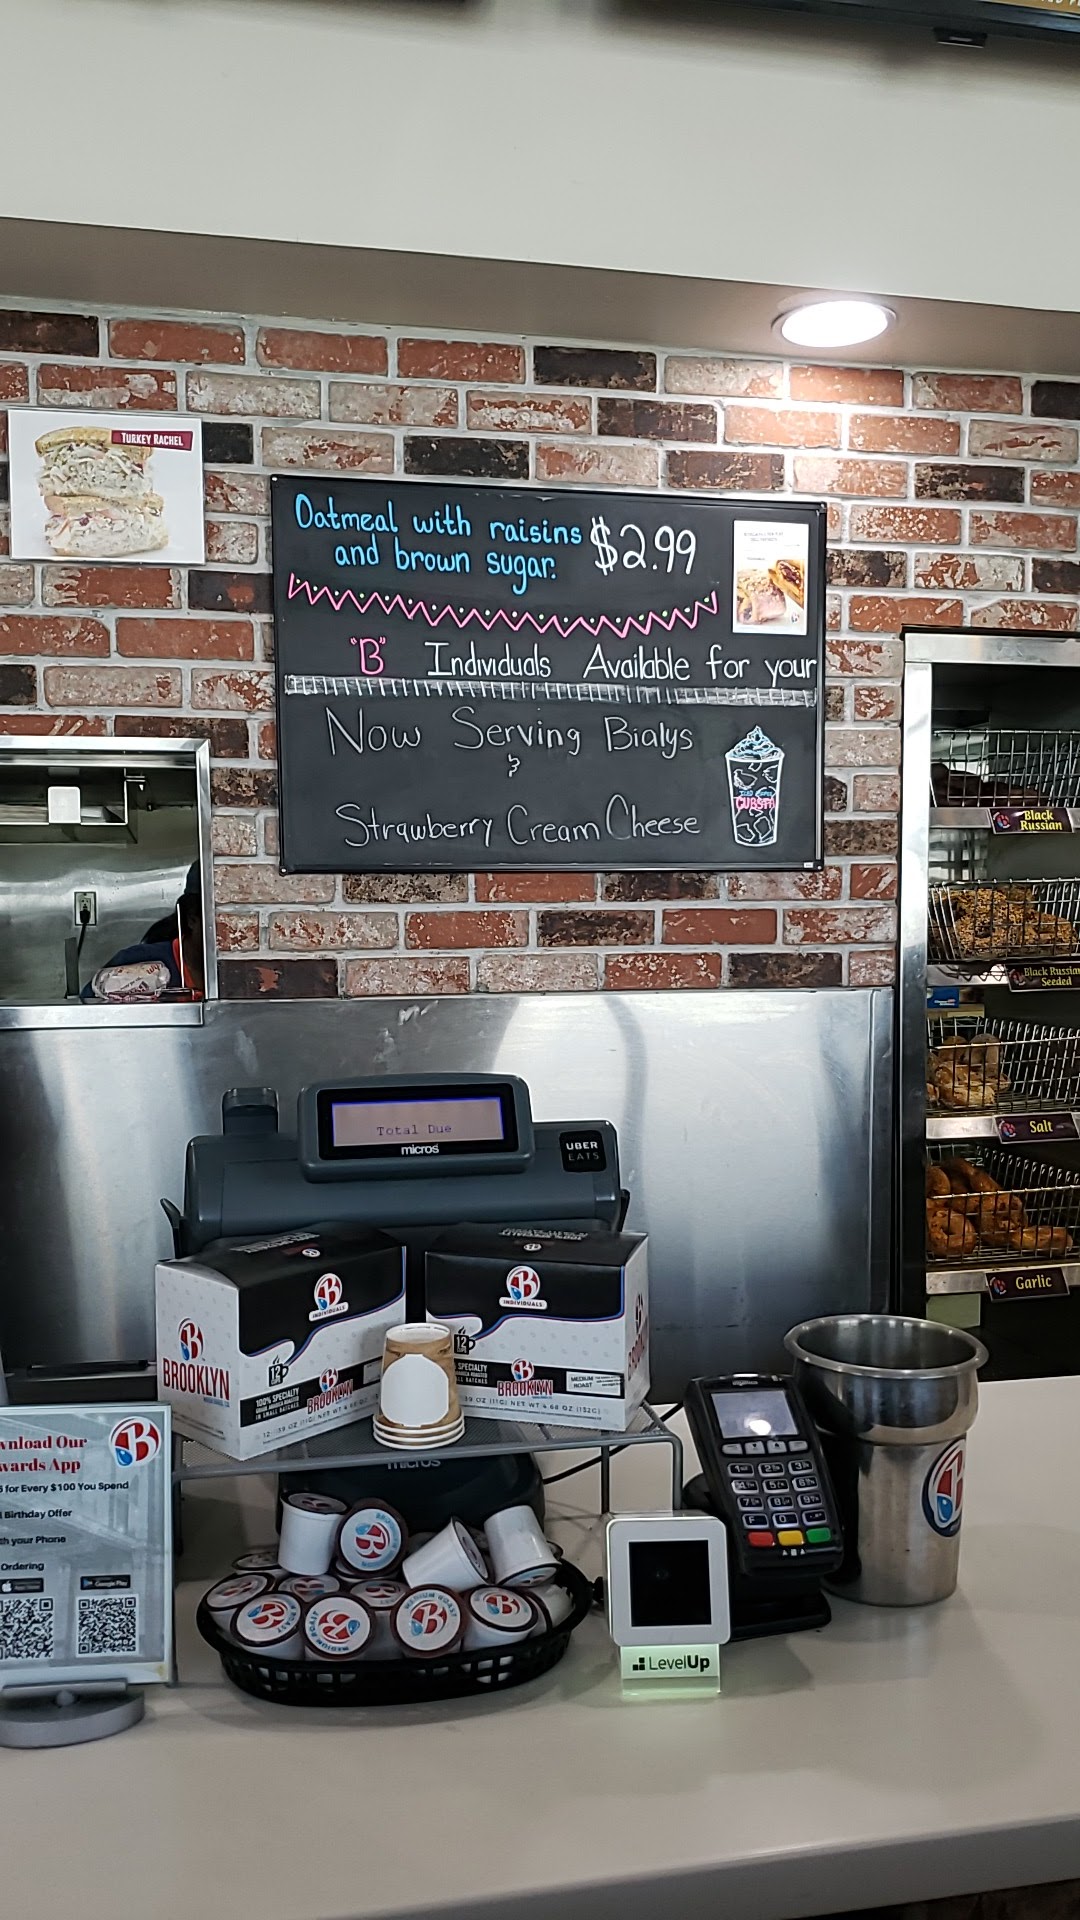 TURKEY RACHEL
Oatmeal with raisins
and brown sugar.
$2.99
"B" Individuals Available for your
Now Serving Bialys
&
Strawberry Cream Cheese
Black
Russian
Black Russian
Seeded
Salt
Garlic
Total Due
micros
UBER
EATS
B
INDIVIDUALS
B
BROOKLYN
12
100% SPECIALTY
IN SMALL BATCHES
BROOKLYN
B
INDIVIDUALS
12
SPECIALTY
BROOKLYN
MEDIUM
ROAST
micros
wnload Our
wards App
for Every $100 You Spend
Birthday Offer
h your Phone
Ordering
Google Play
B
MEDIUM ROAST
LevelUp
B